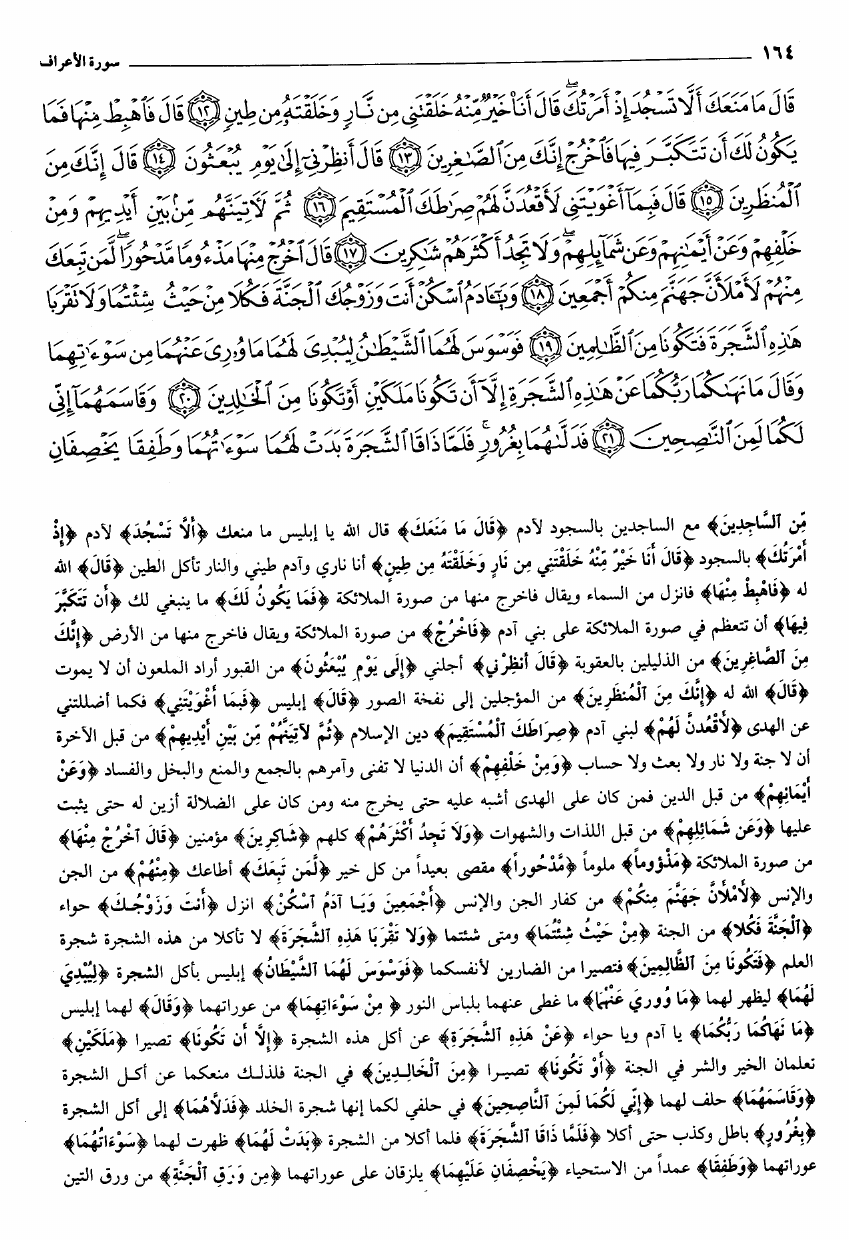 ١٦٤ سورة الأعراف
قَالَ مَا مَنَعَكَ أَلَّا تَسْجُدَ إِذْ أَمَرْتُكَ ۖ قَالَ أَنَا۠ خَيْرٌ مِّنْهُ خَلَقْتَنِي مِن نَّارٍ وَخَلَقْتَهُۥ مِن طِينٍ ﴿١٢﴾ قَالَ فَٱهْبِطْ مِنْهَا فَمَا
يَكُونُ لَكَ أَن تَتَكَبَّرَ فِيهَا فَٱخْرُجْ إِنَّكَ مِنَ ٱلصَّٰغِرِينَ ﴿١٣﴾ قَالَ أَنظِرْنِيٓ إِلَىٰ يَوْمِ يُبْعَثُونَ ﴿١٤﴾ قَالَ إِنَّكَ مِنَ
ٱلْمُنظَرِينَ ﴿١٥﴾ قَالَ فَبِمَآ أَغْوَيْتَنِي لَأَقْعُدَنَّ لَهُمْ صِرَٰطَكَ ٱلْمُسْتَقِيمَ ﴿١٦﴾ ثُمَّ لَأٓتِيَنَّهُم مِّنۢ بَيْنِ أَيْدِيهِمْ وَمِنْ
خَلْفِهِمْ وَعَنْ أَيْمَٰنِهِمْ وَعَن شَمَآئِلِهِمْ ۖ وَلَا تَجِدُ أَكْثَرَهُمْ شَٰكِرِينَ ﴿١٧﴾ قَالَ ٱخْرُجْ مِنْهَا مَذْءُومًا مَّدْحُورًا ۖ لَّمَن تَبِعَكَ
مِنْهُمْ لَأَمْلَأَنَّ جَهَنَّمَ مِنكُمْ أَجْمَعِينَ ﴿١٨﴾ وَيَٰٓـَٔادَمُ ٱسْكُنْ أَنتَ وَزَوْجُكَ ٱلْجَنَّةَ فَكُلَا مِنْ حَيْثُ شِئْتُمَا وَلَا تَقْرَبَا
هَٰذِهِ ٱلشَّجَرَةَ فَتَكُونَا مِنَ ٱلظَّٰلِمِينَ ﴿١٩﴾ فَوَسْوَسَ لَهُمَا ٱلشَّيْطَٰنُ لِيُبْدِيَ لَهُمَا مَا وُۥرِيَ عَنْهُمَا مِن سَوْءَٰتِهِمَا
وَقَالَ مَا نَهَىٰكُمَا رَبُّكُمَا عَنْ هَٰذِهِ ٱلشَّجَرَةِ إِلَّآ أَن تَكُونَا مَلَكَيْنِ أَوْ تَكُونَا مِنَ ٱلْخَٰلِدِينَ ﴿٢٠﴾ وَقَاسَمَهُمَآ إِنِّي
لَكُمَا لَمِنَ ٱلنَّٰصِحِينَ ﴿٢١﴾ فَدَلَّىٰهُمَا بِغُرُورٍ ۚ فَلَمَّا ذَاقَا ٱلشَّجَرَةَ بَدَتْ لَهُمَا سَوْءَٰتُهُمَا وَطَفِقَا يَخْصِفَانِ
مِّن ٱلسَّاجِدِينَ﴾ مع الساجدين بالسجود لآدم ﴿قَالَ مَا مَنَعَكَ﴾ قال الله يا إبليس ما منعك ﴿أَلَّا تَسْجُدَ﴾ لآدم ﴿إِذْ
أَمَرْتُكَ﴾ بالسجود ﴿قَالَ أَنَا خَيْرٌ مِّنْهُ خَلَقْتَنِي مِن نَارٍ وَخَلَقْتَهُ مِن طِينٍ﴾ أنا ناري وآدم طيني والنار تأكل الطين ﴿قَالَ﴾ الله
له ﴿فَاهْبِطْ مِنْهَا﴾ فانزل من السماء ويقال فاخرج منها من صورة الملائكة ﴿فَمَا يَكُونُ لَكَ﴾ ما ينبغي لك ﴿أَن تَتَكَبَّرَ
فِيهَا﴾ أن تتعظم في صورة الملائكة على بني آدم ﴿فَاخْرُجْ﴾ من صورة الملائكة ويقال فاخرج منها من الأرض ﴿إِنَّكَ
مِنَ ٱلصَّاغِرِينَ﴾ من الذليلين بالعقوبة ﴿قَالَ أَنظِرْنِي﴾ أجلني ﴿إِلَى يَوْمِ يُبْعَثُونَ﴾ من القبور أراد الملعون أن لا يموت
﴿قَالَ﴾ الله له ﴿إِنَّكَ مِنَ ٱلْمُنظَرِينَ﴾ من المؤجلين إلى نفخة الصور ﴿قَالَ﴾ إبليس ﴿فَبِمَا أَغْوَيْتَنِي﴾ فكما أضللتني
عن الهدى ﴿لَأَقْعُدَنَّ لَهُمْ﴾ لبني آدم ﴿صِرَاطَكَ ٱلْمُسْتَقِيمَ﴾ دين الإسلام ﴿ثُمَّ لآتِيَنَّهُمْ مِّن بَيْنِ أَيْدِيهِمْ﴾ من قبل الآخرة
أن لا جنة ولا نار ولا بعث ولا حساب ﴿وَمِنْ خَلْفِهِمْ﴾ أن الدنيا لا تفنى وآمرهم بالجمع والمنع والبخل والفساد ﴿وَعَنْ
أَيْمَانِهِمْ﴾ من قبل الدين فمن كان على الهدى أشبه عليه حتى يخرج منه ومن كان على الضلالة أزين له حتى يثبت
عليها ﴿وَعَن شَمَائِلِهِمْ﴾ من قبل اللذات والشهوات ﴿وَلَا تَجِدُ أَكْثَرَهُمْ﴾ كلهم ﴿شَاكِرِينَ﴾ مؤمنين ﴿قَالَ ٱخْرُجْ مِنْهَا﴾
من صورة الملائكة ﴿مَذْؤُوماً﴾ ملوماً ﴿مَّدْحُوراً﴾ مقصى بعيداً من كل خير ﴿لَّمَن تَبِعَكَ﴾ أطاعك ﴿مِنْهُمْ﴾ من الجن
والإنس ﴿لَأَمْلَأَنَّ جَهَنَّمَ مِنكُمْ﴾ من كفار الجن والإنس ﴿أَجْمَعِينَ وَيَا آدَمُ ٱسْكُنْ﴾ انزل ﴿أَنتَ وَزَوْجُكَ﴾ حواء
﴿ٱلْجَنَّةَ فَكُلَا﴾ من الجنة ﴿مِنْ حَيْثُ شِئْتُمَا﴾ ومتى شئتما ﴿وَلَا تَقْرَبَا هَذِهِ ٱلشَّجَرَةَ﴾ لا تأكلا من هذه الشجرة شجرة
العلم ﴿فَتَكُونَا مِنَ ٱلظَّالِمِينَ﴾ فتصيرا من الضارين لأنفسكما ﴿فَوَسْوَسَ لَهُمَا ٱلشَّيْطَانُ﴾ إبليس بأكل الشجرة ﴿لِيُبْدِيَ
لَهُمَا﴾ ليظهر لهما ﴿مَا وُورِيَ عَنْهُمَا﴾ ما غطى عنهما بلباس النور ﴿ مِنْ سَوْءَاتِهِمَا﴾ من عوراتهما ﴿وَقَالَ﴾ لهما إبليس
﴿مَا نَهَاكُمَا رَبُّكُمَا﴾ يا آدم ويا حواء ﴿عَنْ هَذِهِ ٱلشَّجَرَةِ﴾ عن أكل هذه الشجرة ﴿إِلَّا أَن تَكُونَا﴾ تصيرا ﴿مَلَكَيْنِ﴾
تعلمان الخير والشر في الجنة ﴿أَوْ تَكُونَا﴾ تصيرا ﴿مِنَ ٱلْخَالِدِينَ﴾ في الجنة فلذلك منعكما عن أكل الشجرة
﴿وَقَاسَمَهُمَا﴾ حلف لهما ﴿إِنِّي لَكُمَا لَمِنَ ٱلنَّاصِحِينَ﴾ في حلفي لكما إنها شجرة الخلد ﴿فَدَلَّاهُمَا﴾ إلى أكل الشجرة
﴿بِغُرُورٍ﴾ باطل وكذب حتى أكلا ﴿فَلَمَّا ذَاقَا ٱلشَّجَرَةَ﴾ فلما أكلا من الشجرة ﴿بَدَتْ لَهُمَا﴾ ظهرت لهما ﴿سَوْءَاتُهُمَا﴾
عوراتهما ﴿وَطَفِقَا﴾ عمداً من الاستحياء ﴿يَخْصِفَانِ عَلَيْهِمَا﴾ يلزقان على عوراتهما ﴿مِن وَرَقِ ٱلْجَنَّةِ﴾ من ورق التين